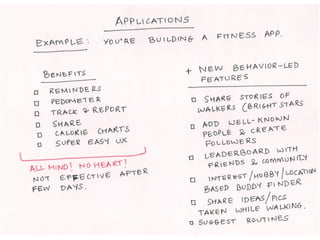 APPLICATIONS
EXAMPLE: YOU'RE BUILDING A FITNESS APP.
BENEFITS
REMINDERS
PEDOMETER
TRACK & REPORT
SHARE
CALORIE CHARTS
SUPER EASY UX
ALL MIND! NO HEART!
NOT EFFECTIVE AFTER
FEW DAYS.
+ NEW BEHAVIOR-LED
FEATURES
SHARE STORIES OF
WALKERS (BRIGHT STARS
ADD WELL-KNOWN
PEOPLE & CREATE
FOLLOWERS
LEADERBOARD WITH
FRIENDS & COMMUNITY
INTEREST/HOBBY/LOCATION
BASED BUDDY FINDER
SHARE IDEAS/PICS
TAKEN WHILE WALKING.
SUGGEST ROUTINES